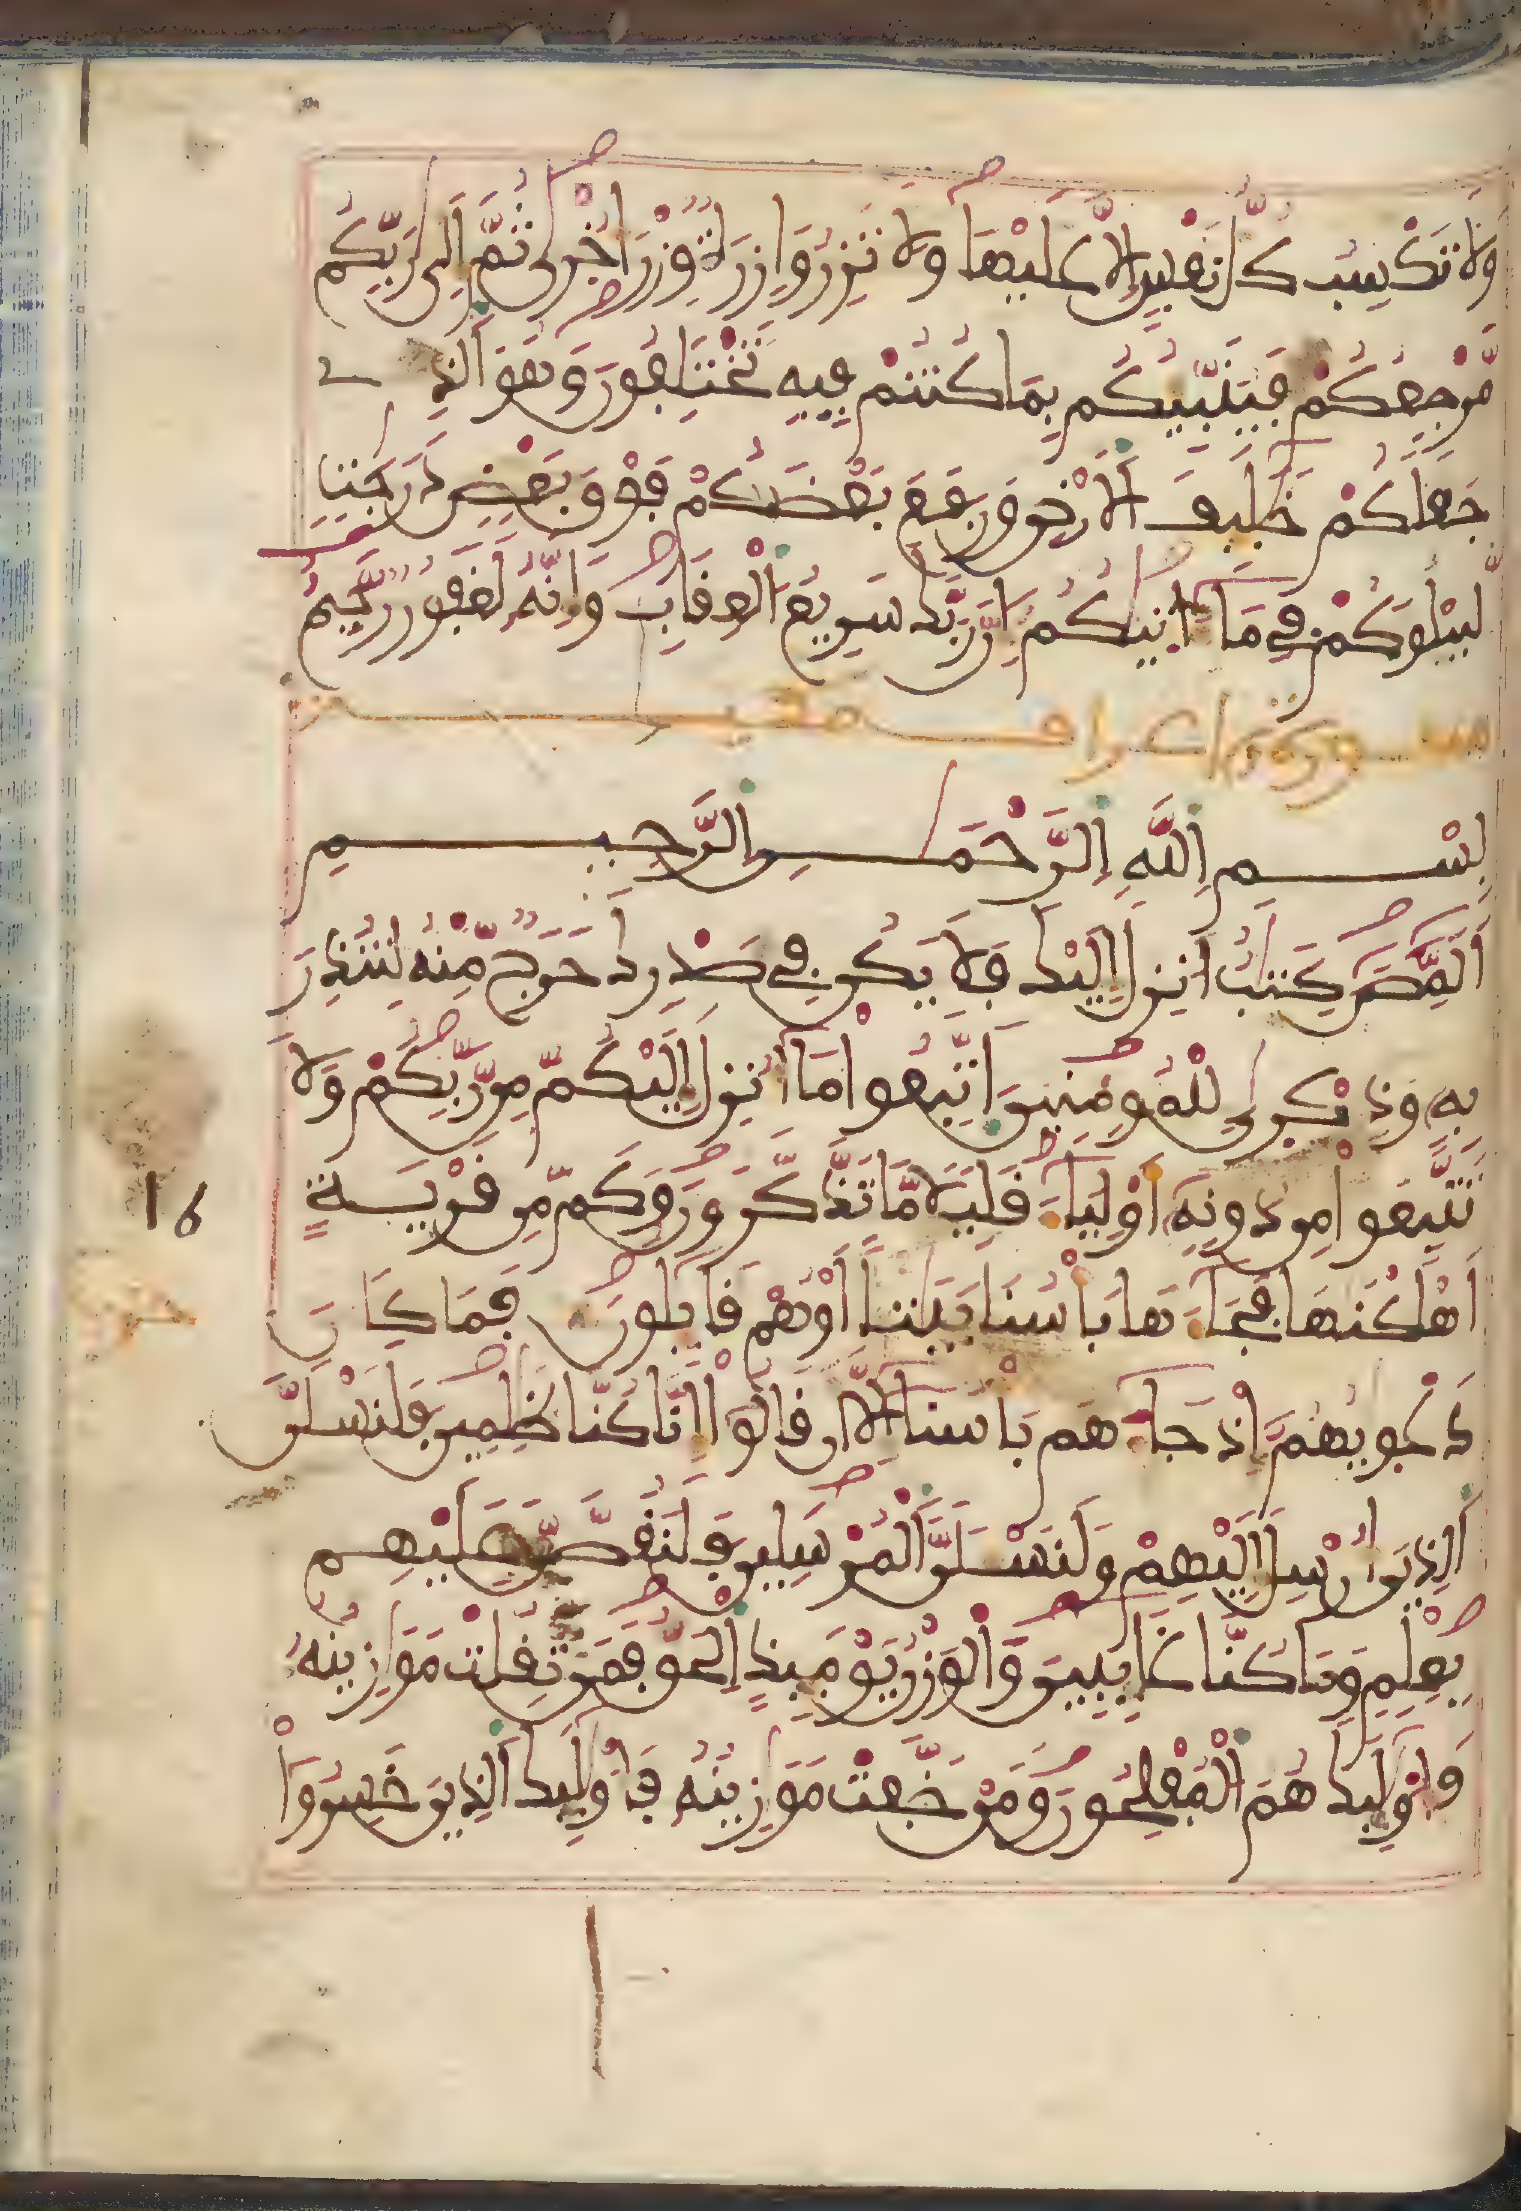 وَلَا تَكْسِبُ كُلُّ نَفْسٍ اِلَّا عَلَيْهَا وَلَا تَزِرُ وَازِرَةٌ وِزْرَ أُخْرَى ثُمَّ إِلَى رَبِّكُم
مَّرْجِعُكُمْ فَيُنَبِّئُكُم بِمَا كُنتُمْ فِيهِ تَخْتَلِفُونَ وَهُوَ الذِے
جَعَلَكُمْ خَلَٰٓئِفَ اَلَارْضِ وَرَفَعَ بَعْضَكُمْ فَوْقَ بَعْضٍ دَرَجَٰتٍ
لِّيَبْلُوَكُمْ فِے مَآ ءَاتَيٰكُمُ إِنَّ رَبَّكَ سَرِيعُ اَلْعِقَابِ وَإِنَّهُۥ لَغَفُورٌ رَّحِيمٌ
سورة الاعراف مكية
بِسْمِ اِللَّهِ اِلرَّحْمَٰنِ اِلرَّحِيمِ
أَلَٓمِّٓصَٓ كِتَٰبٌ انزِلَ إِلَيْكَ فَلَا يَكُن فِے صَدْرِكَ حَرَجٌ مِّنْهُ لِتُنذِرَ
بِهِۦ وَذِكْرَىٰ لِلْمُومِنِينَ اَتَّبِعُواْ مَآ أُنزِلَ إِلَيْكُم مِّن رَّبِّكُمْ وَلَا
تَتَّبِعُواْ مِن دُونِهِۦٓ أَوْلِيَآءَ قَلِيلًا مَّا تَذَّكَّرُونَ وَكَم مِّن قَرْيَةٍ
اَهْلَكْنَٰهَا فَجَآءَهَا بَأْسُنَا بَيَٰتًا اَوْ هُمْ قَآئِلُونَ فَمَا كَانَ
دَعْوِيٰهُمُ إِذْ جَآءَهُم بَأْسُنَآ إِلَّآ أَن قَالُوٓاْ إِنَّا كُنَّا ظَٰلِمِينَ فَلَنَسْـَٔلَنَّ
اَلذِينَ أُرْسِلَ إِلَيْهِمْ وَلَنَسْـَٔلَنَّ اَلْمُرْسَلِينَ فَلَنَقُصَّنَّ عَلَيْهِم
بِعِلْمٍ وَمَا كُنَّا غَآئِبِينَ وَالْوَزْنُ يَوْمَئِذٍ اِلْحَقُّ فَمَن ثَقُلَتْ مَوَٰزِينُهُۥ
فَأُوْلَٰٓئِكَ هُمُ اَلْمُفْلِحُونَ وَمَنْ خَفَّتْ مَوَٰزِينُهُۥ فَأُوْلَٰٓئِكَ اَلذِينَ خَسِرُوٓاْ
16